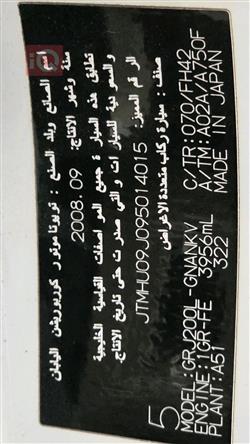 اسم الصانع وبلد الصنع : تويوتا موتور كوربوريشن اليابان
سنة وشهر الانتاج: 2008.09
تطابق هذه السيارة جميع المواصفات القياسية الخليجية
والسعودية للسيارات والتي صدرت حتى تاريخ الانتاج.
الرقم المميز: JTMHU09J095014015
صنف: سيارة ركاب متعددة الاغراض
5
MODEL:GRJ200L-GNANKV
ENGINE:1GR-FE 3956mL
PLANT:A51 322
C/TR:070/FH42
A/TM:A02A/A750F
MADE IN JAPAN